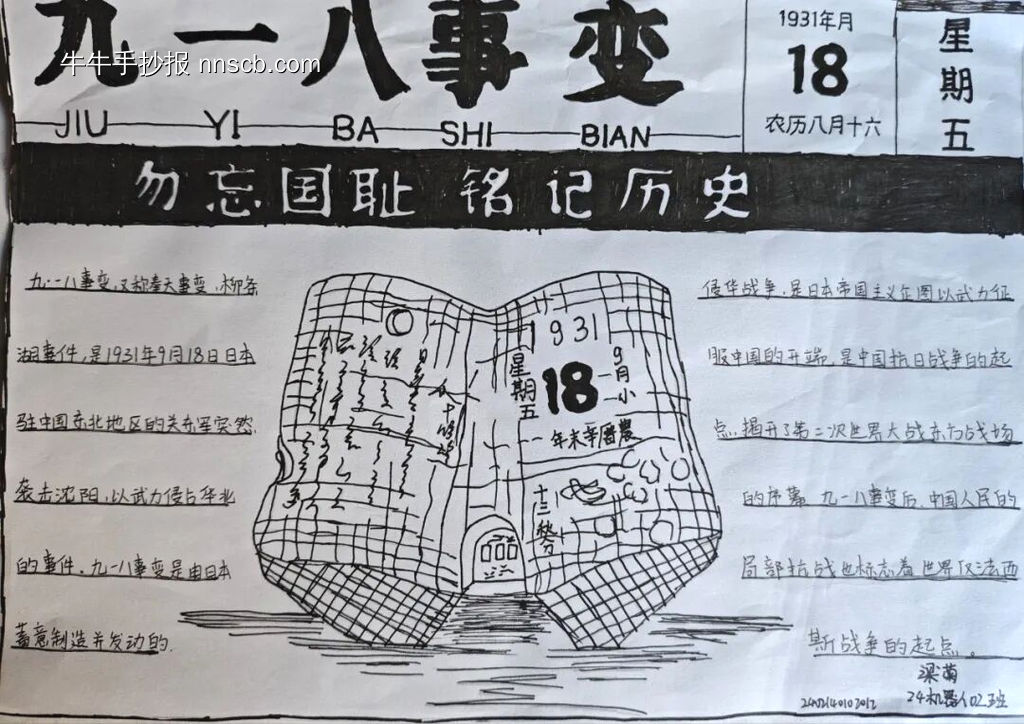 九一八事变
牛牛手抄报 nnscb.com
JIU YI BA SHI BIAN
1931年月
18
农历八月十六
星期五
勿忘国耻 铭记历史
九·一八事变,又称奉天事变、柳条
湖事件,是1931年9月18日日本
驻中国东北地区的关东军突然
袭击沈阳,以武力侵占华北
的事件,九一八事变是由日本
蓄意制造并发动的.
1931
18
星期五
9月小
年未辛曆農
十三
侵华战争,是日本帝国主义企图以武力征
服中国的开端,是中国抗日战争的起
点,揭开了第二次世界大战东方战场
的序幕,九一八事变后,中国人民的
局部抗战也标志着世界反法西
斯战争的起点。
梁萌
24机器人02班